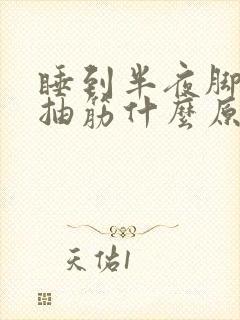 睡到半夜脚
抽筋什麼原
天佑1